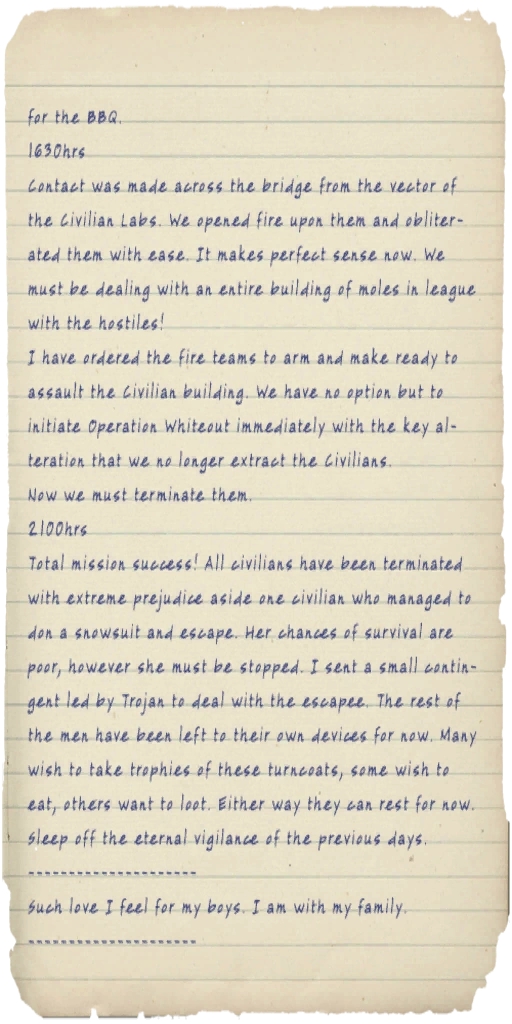 for the BBQ.
1630hrs
Contact was made across the bridge from the vector of
the Civilian Labs. We opened fire upon them and obliter-
ated them with ease. It makes perfect sense now. We
must be dealing with an entire building of moles in league
with the hostiles!
I have ordered the fire teams to arm and make ready to
assault the Civilian building. We have no option but to
initiate Operation Whiteout immediately with the key al-
teration that we no longer extract the Civilians.
Now we must terminate them.
2100hrs
Total mission success! All civilians have been terminated
with extreme prejudice aside one civilian who managed to
don a snowsuit and escape. Her chances of survival are
poor, however she must be stopped. I sent a small contin-
gent led by Trojan to deal with the escapee. The rest of
the men have been left to their own devices for now. Many
wish to take trophies of these turncoats, some wish to
eat, others want to loot. Either way they can rest for now.
Sleep off the eternal vigilance of the previous days.
---------------------
Such love I feel for my boys. I am with my family.
---------------------